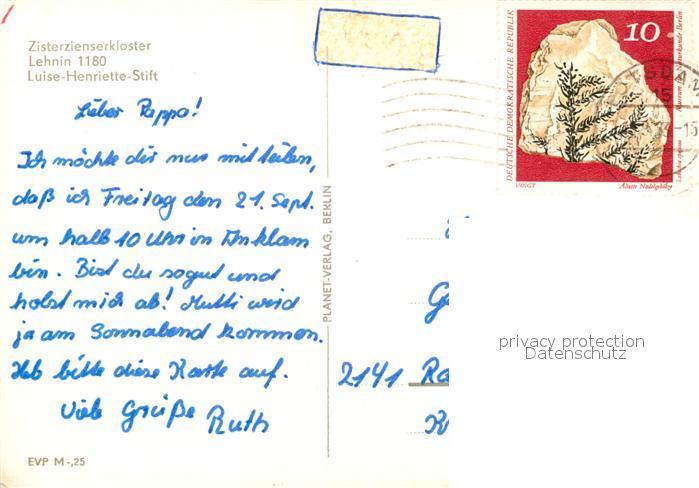 Zisterzienserkloster
Lehnin 1180
Luise-Henriette-Stift
Lieber Pappa!
Ich möchte dir nur mitteilen,
daß ich Freitag den 21. Sept.
um halb 10 Uhr in Anklam
bin. Bist du sogut und
holst mich ab! Mutti wird
ja am Sonnabend kommen.
Heb bitte diese Karte auf.
Viele Grüße Ruth
EVP M -,25
PLANET-VERLAG, BERLIN
DEUTSCHE DEMOKRATISCHE REPUBLIK
10
VOIGT
Älteste Nadelgehölze
POTSDAM
15
2141
privacy protection
Datenschutz